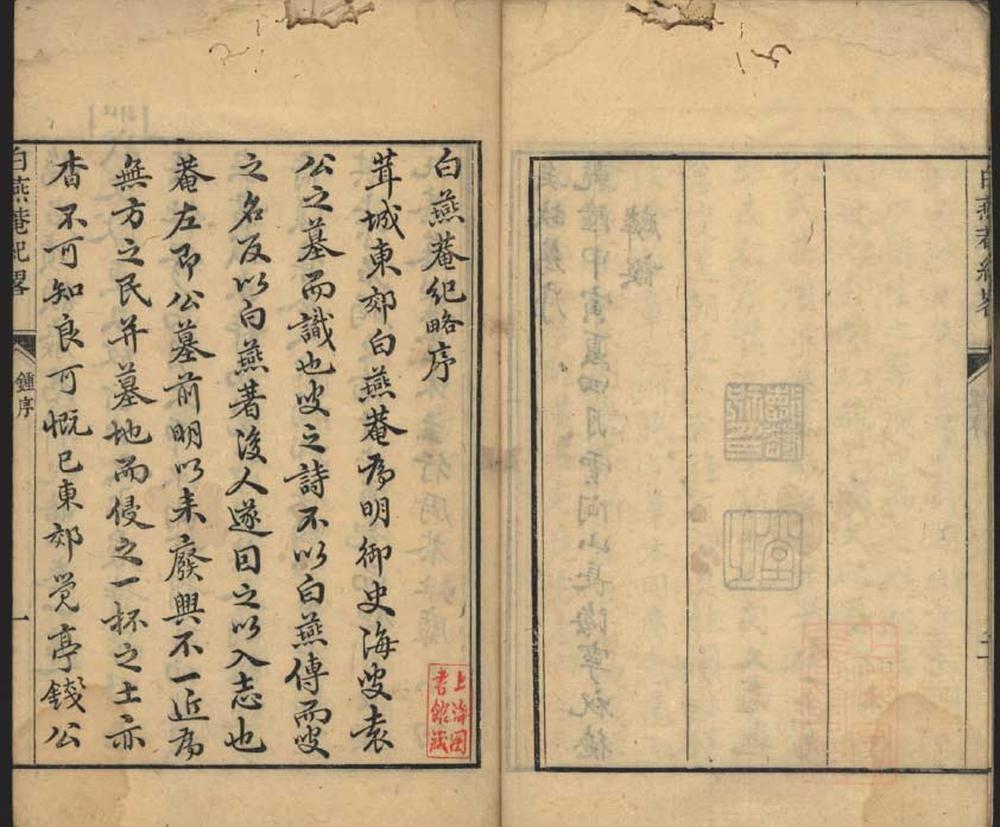 白燕菴紀畧
二
白燕菴紀略序
茸城東郊白燕菴為明御史海叟袁
公之墓而識也叟之詩不以白燕傳而叟
之名反以白燕著後人遂因之以入志也
菴左即公墓前明以来廢興不一近為
無方之民并墓地而侵之一抔之土亦
杳不可知良可慨已東郊覚亭錢公
上海圖
書館藏
白燕菴紀畧
鍾序
一